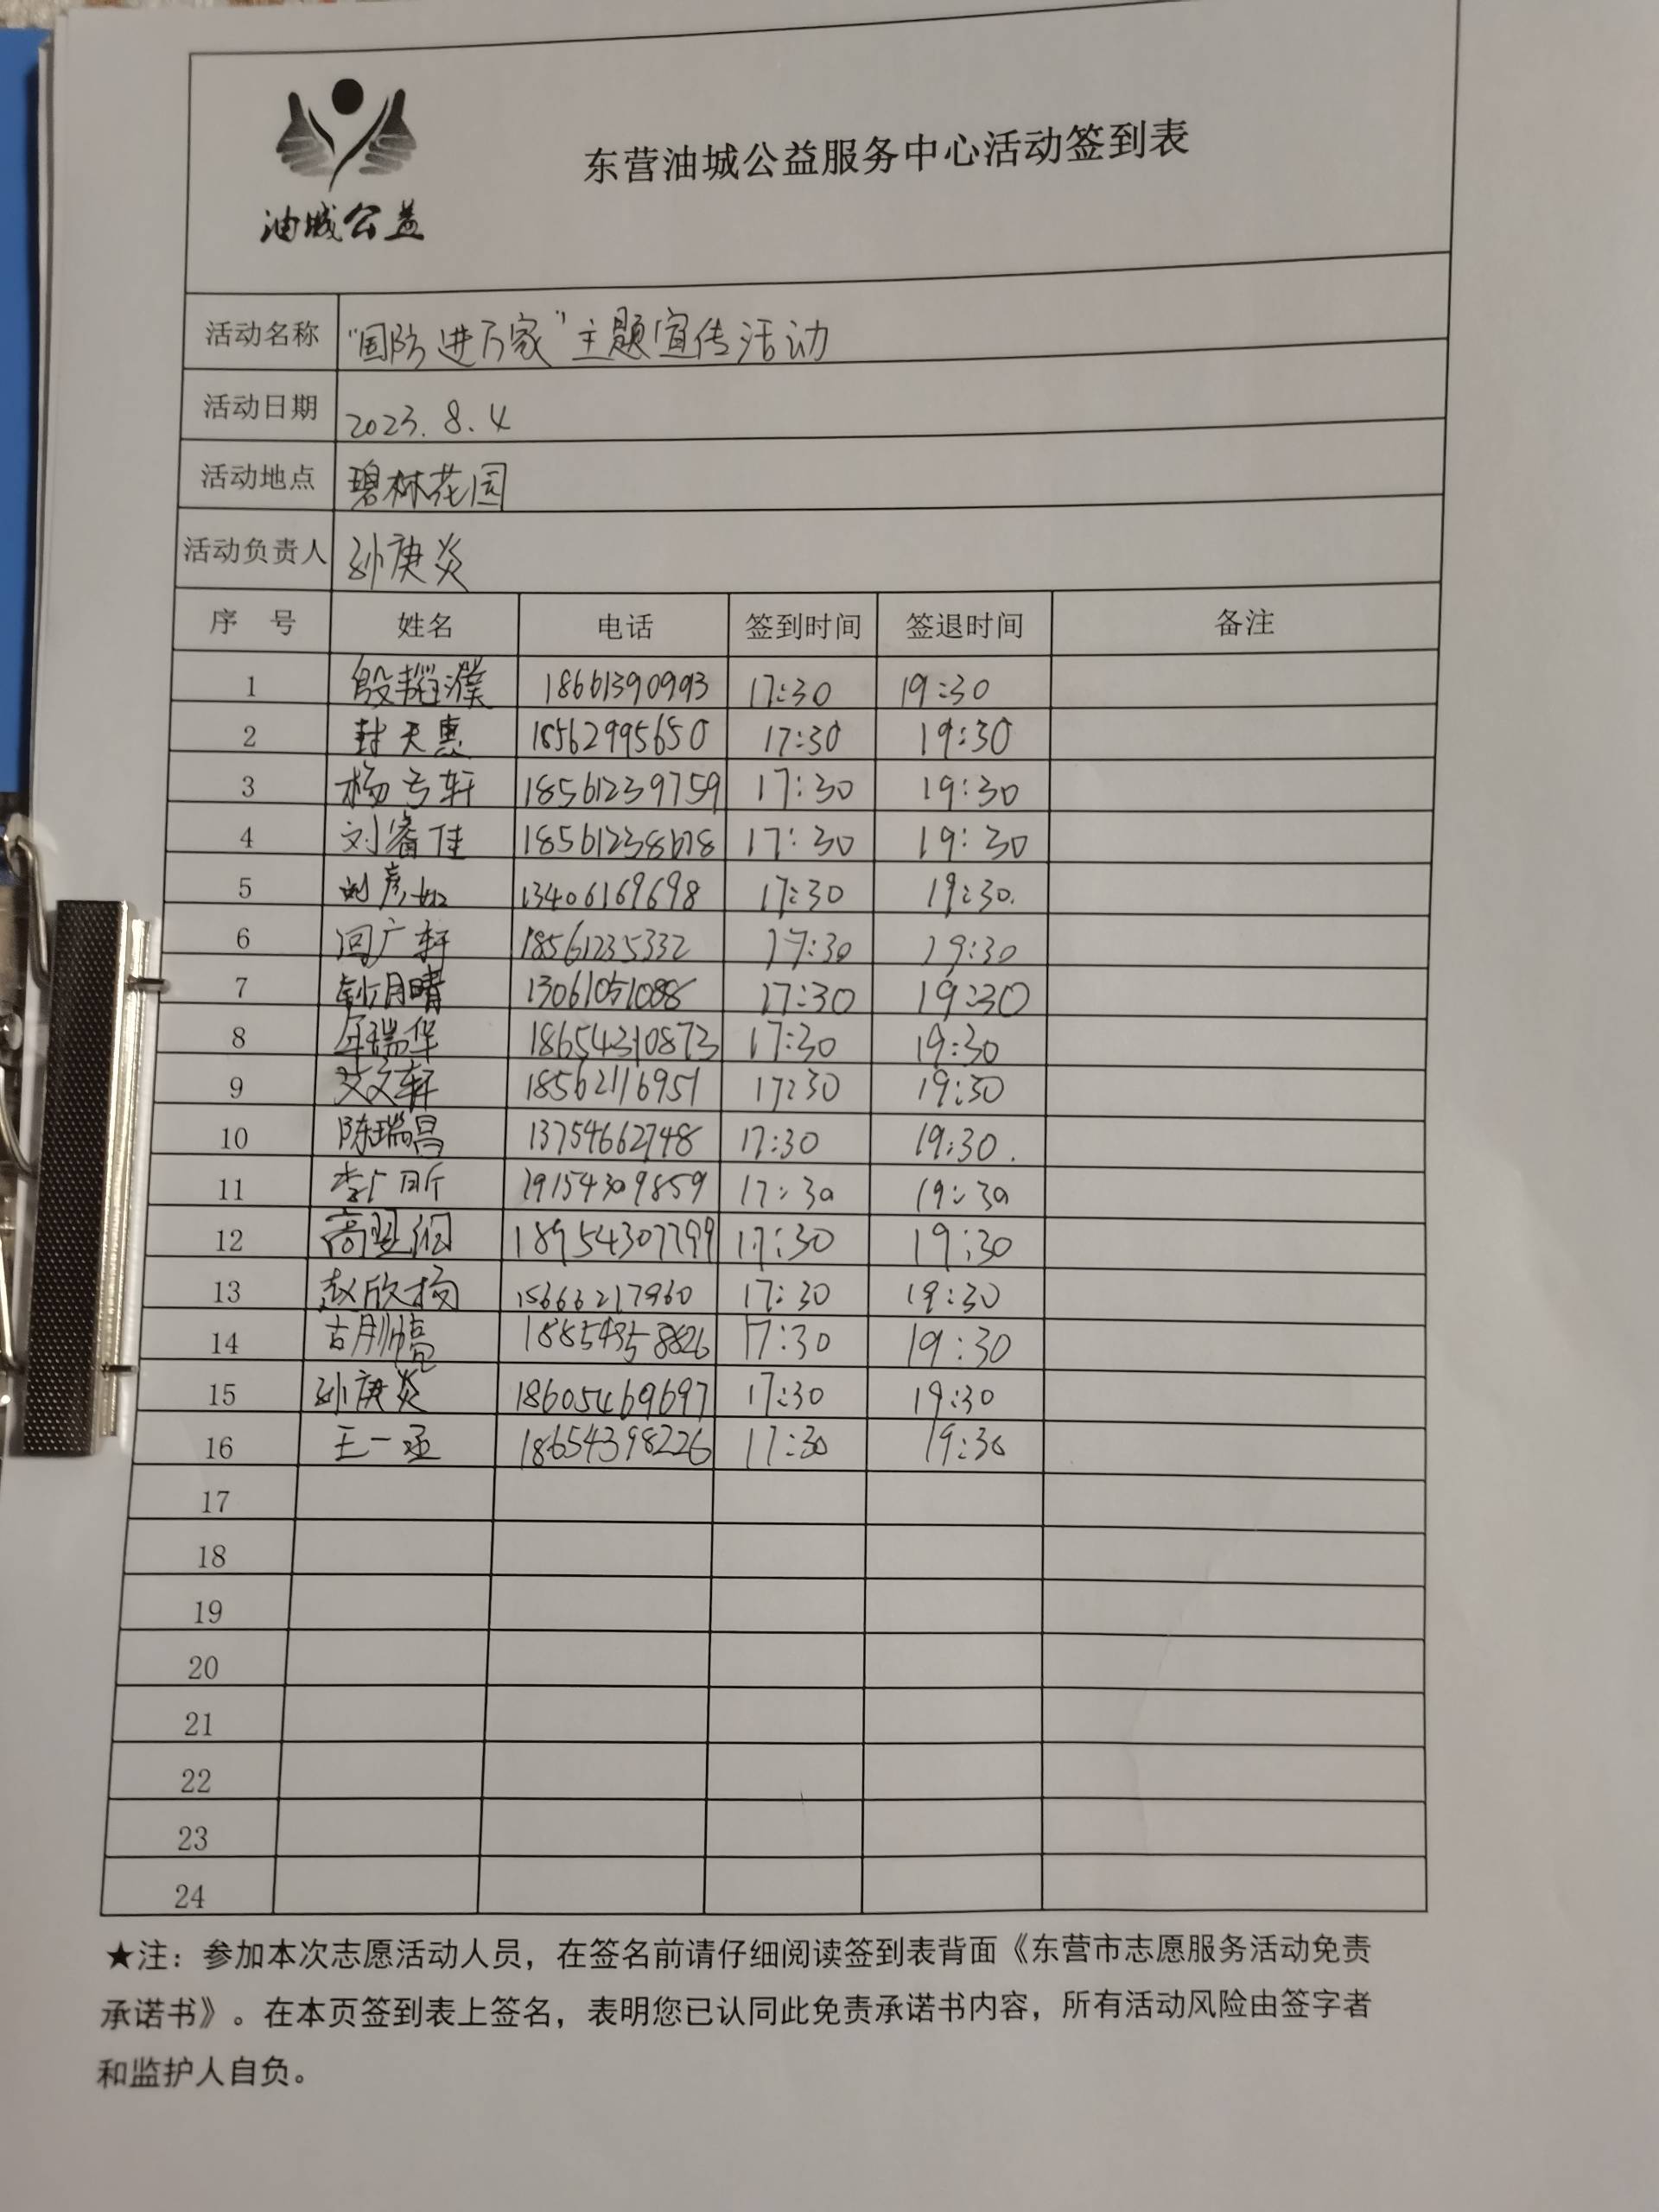 油城公益
东营油城公益服务中心活动签到表
活动名称 "国防进万家"主题宣传活动
活动日期 2023.8.4
活动地点 碧林花园
活动负责人 孙庚炎
序 号 姓名 电话 签到时间 签退时间 备注
1 殷韬濮 18661390993 17:30 19:30
2 封天惠 18562995650 17:30 19:30
3 杨号轩 18561239759 17:30 19:30
4 刘睿佳 18561238678 17:30 19:30
5 刘彦如 13406169698 17:30 19:30.
6 回广轩 18561235332 17:30 19:30
7 月晴 13061051088 17:30 19:30
8 瑞华 18654310873 17:30 19:30
9 艾文轩 18562116951 17:30 19:30
10 陈瑞昌 13754662748 17:30 19:30.
11 李广昕 19154309859 17:30 19:30
12 高 18954307799 17:30 19:30
13 赵欣杨 15666217960 17:30 19:30
14 胡帅亮 17:30 19:30
15 孙庚炎 18605469697 17:30 19:30
16 王一丞 18654398226 17:30 19:30
17
18
19
20
21
22
23
24
★注：参加本次志愿活动人员，在签名前请仔细阅读签到表背面《东营市志愿服务活动免责
承诺书》。在本页签到表上签名，表明您已认同此免责承诺书内容，所有活动风险由签字者
和监护人自负。